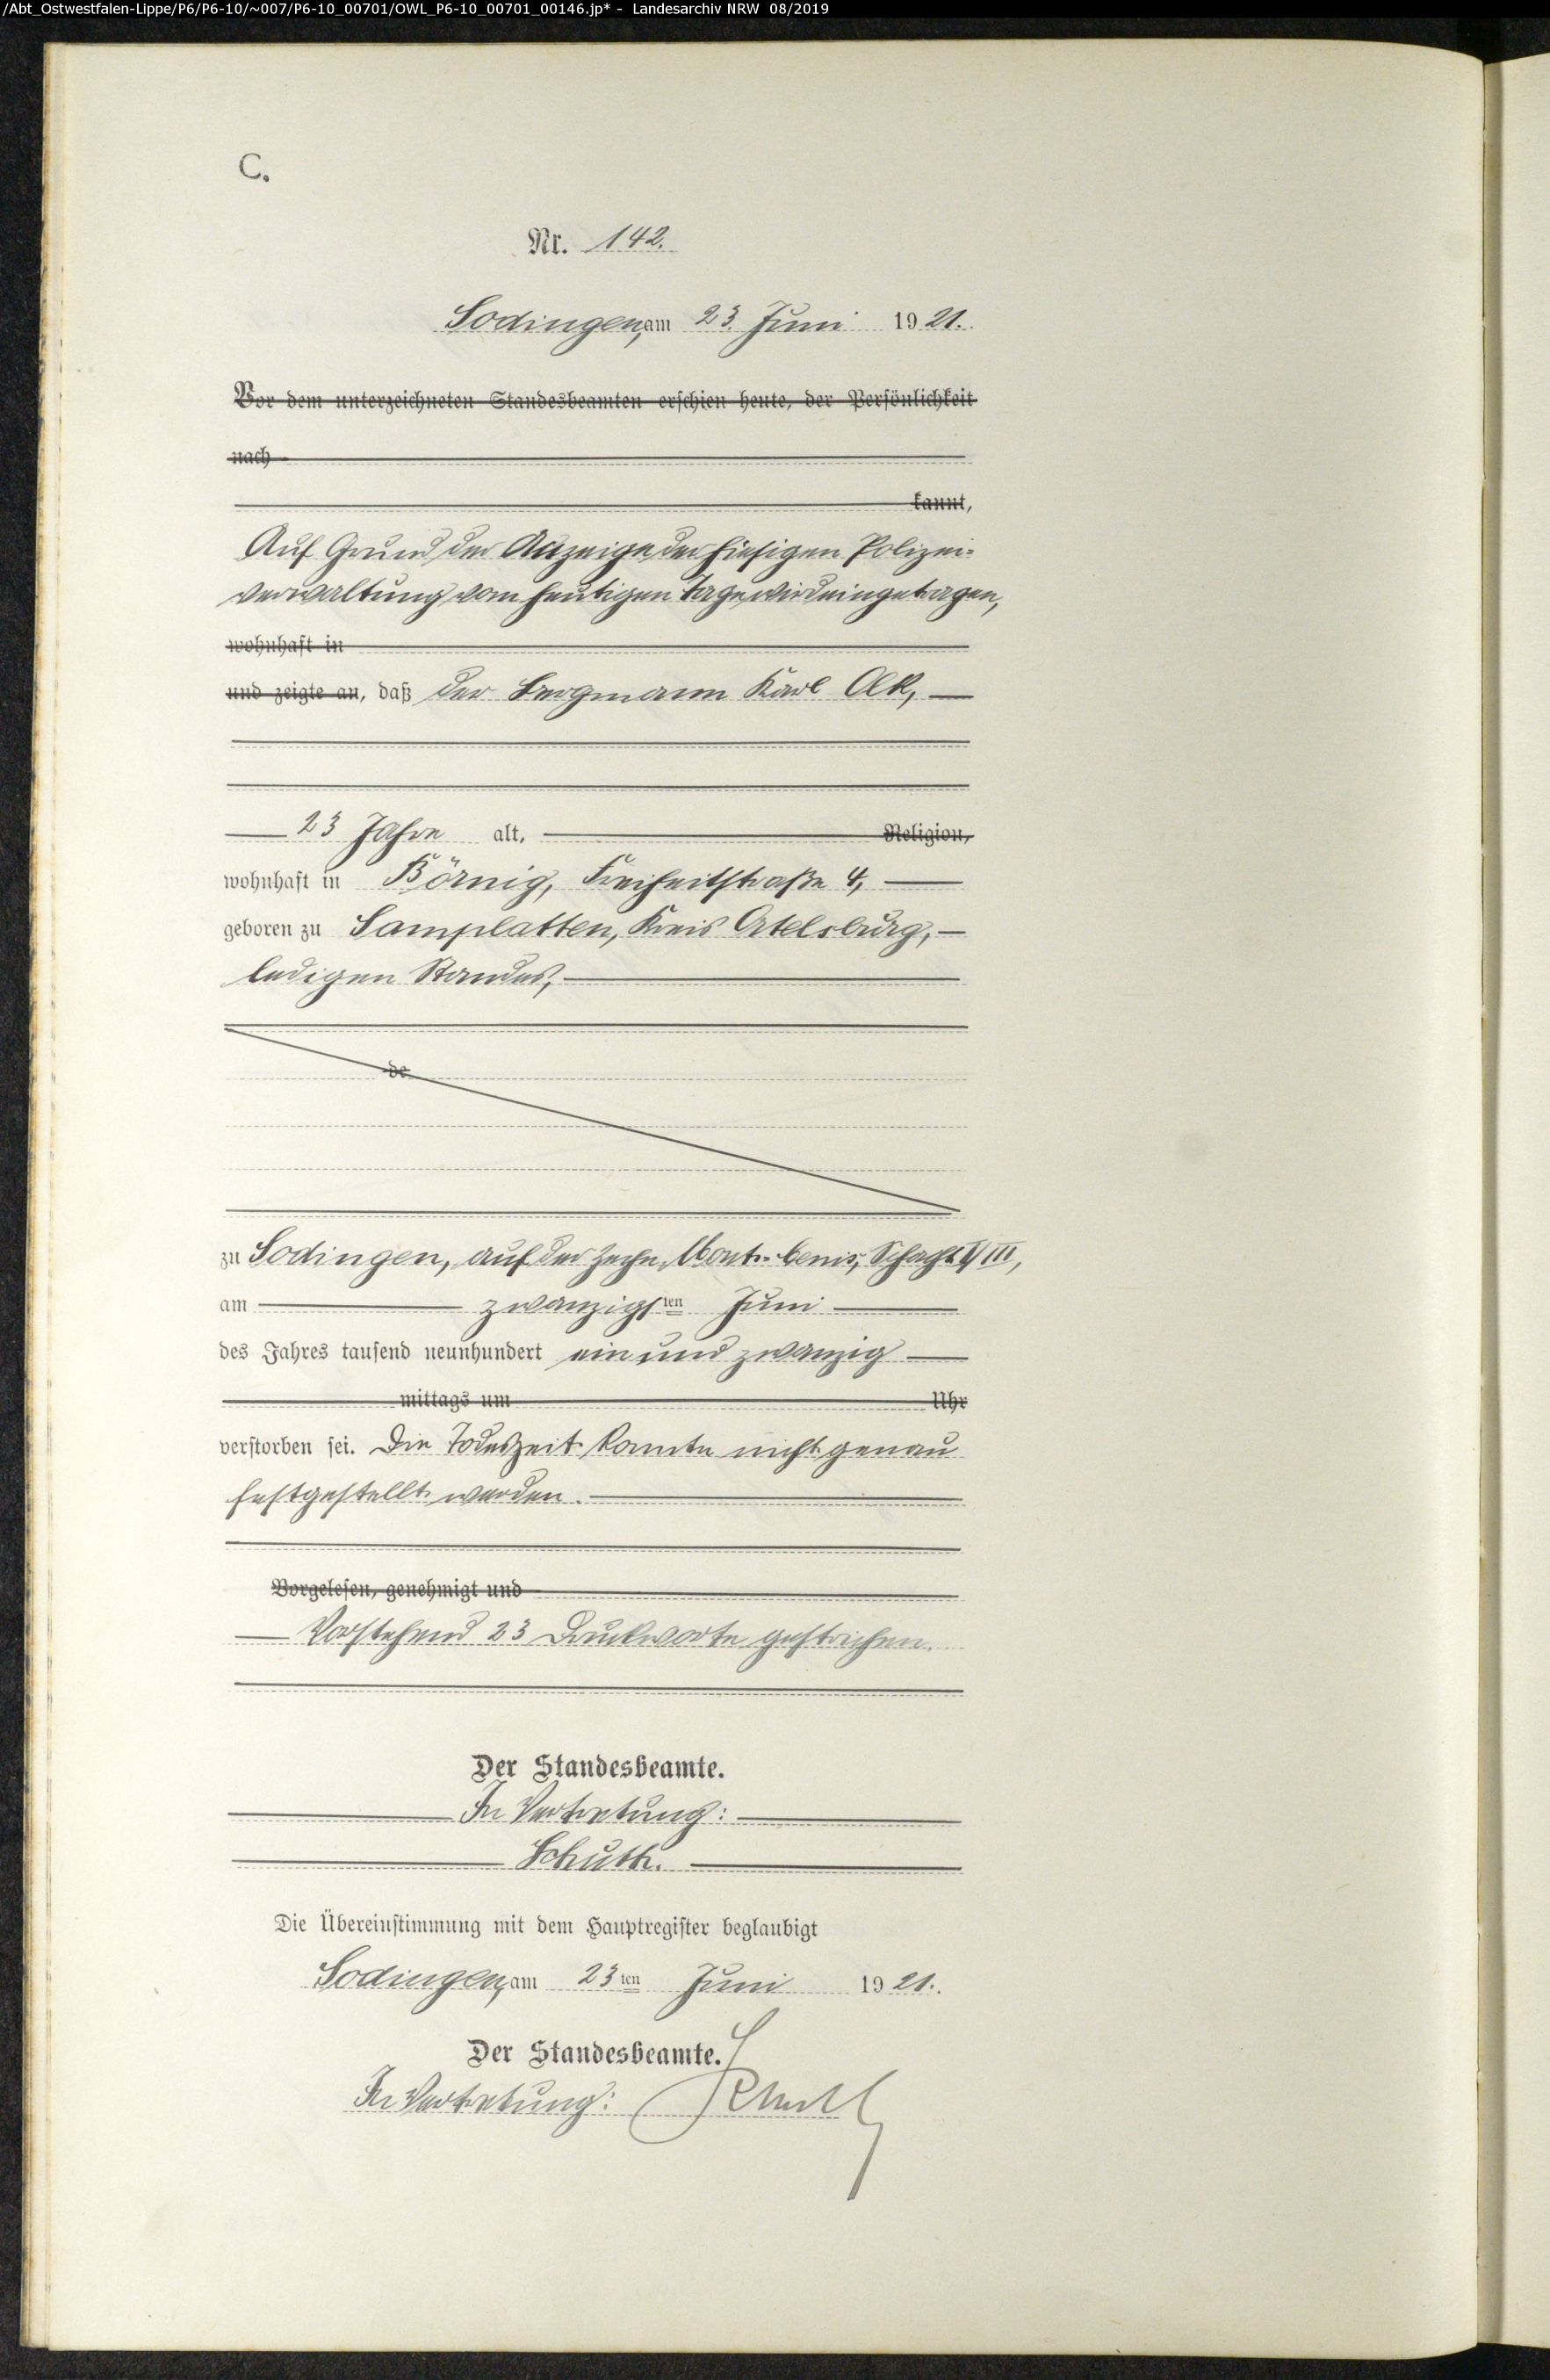 /Abt_Ostwestfalen-Lippe/P6/P6-10/~007/P6-10_00701/OWL_P6-10_00701_00146.jp* - Landesarchiv NRW 08/2019
C.
Nr. 142.
Sodingen, am 23. Juni 1921.
Vor dem unterzeichneten Standesbeamten erschien heute, der Persönlichkeit
nach
kannt,
Auf Grund der Anzeige der hiesigen Polizei-
verwaltung vom heutigen Tage wird eingetragen,
wohnhaft in
und zeigte an, daß der Bergmann Karl Olk,
23 Jahre alt, Religion,
wohnhaft in Börnig, Freiheitstraße 4,
geboren zu Samplatten, Kreis Ortelsburg,
ledigen Standes,
de
zu Sodingen, auf der Zeche Mont-Cenis, Schacht I/III,
am zwanzigsten Juni
des Jahres tausend neunhundert ein und zwanzig
mittags um Uhr
verstorben sei. Die Todeszeit konnte nicht genau
festgestellt werden.
Vorgelesen, genehmigt und
Vorstehend 23 Druckworte gestrichen.
Der Standesbeamte.
In Vertretung:
Schuth.
Die Übereinstimmung mit dem Hauptregister beglaubigt
Sodingen, am 23ten Juni 1921.
Der Standesbeamte.
In Vertretung: Schuth